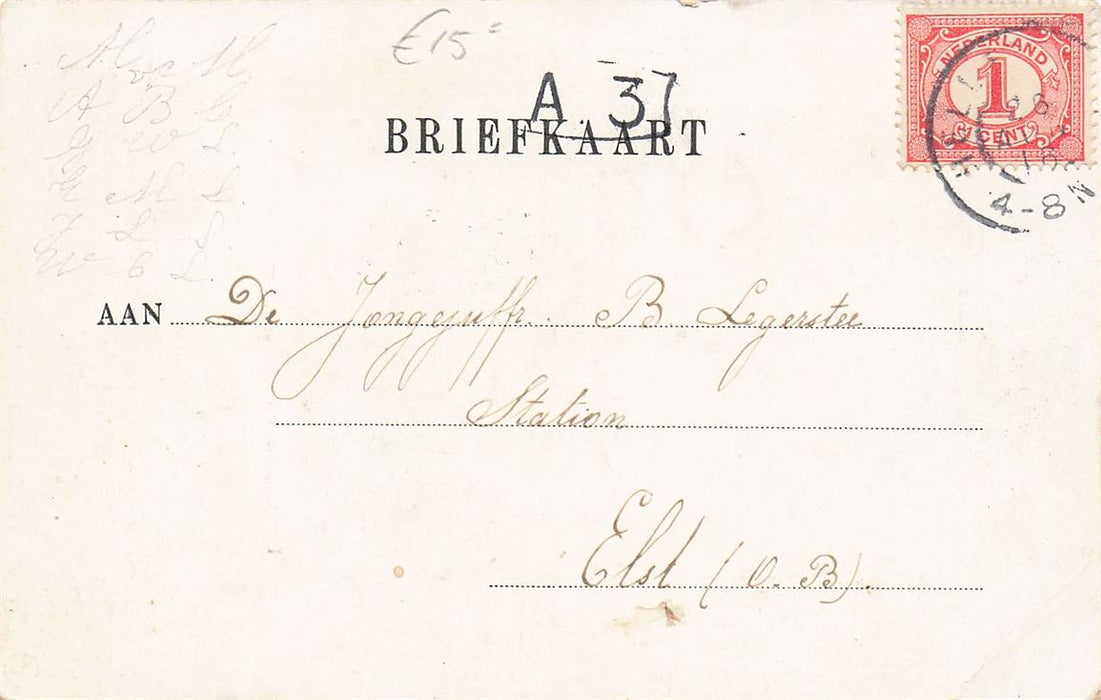 € 15=
A 37
BRIEFKAART
NEDERLAND
1
CENT
28
4-8 N
A B C
G W L.
G M L.
J L L.
W C L.
AAN De Jongejuffr. B Legerstee
Station
Elst (O. B).